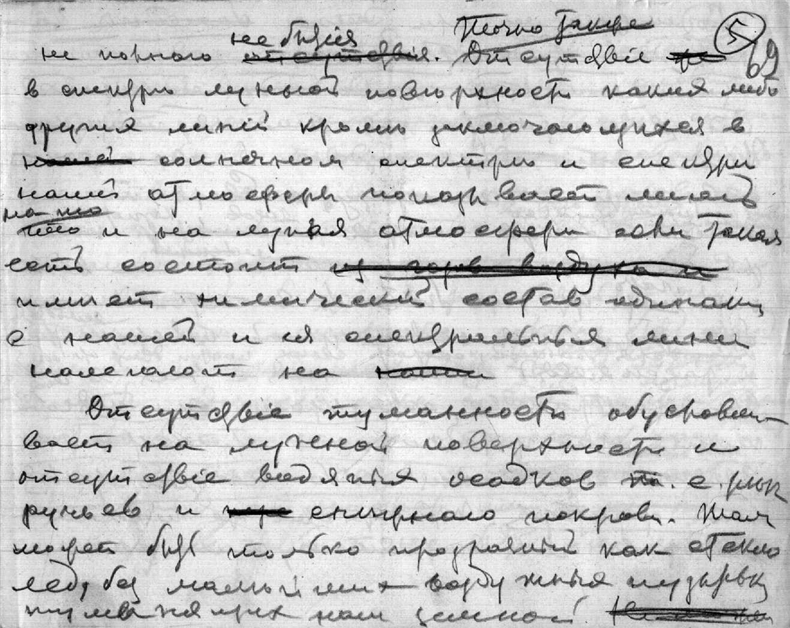 не полного не бытия. Точно также 5
Отсутствiе 69
в спектре лунной поверхности каких либо
других линiй кроме заключающихся в
солнечном спектре и спектре
нашей атмосферы показывает лишь
на то что и на луне атмосфера если такая
есть состоит
имеет химический состав одинак.
с нашей и ея спектральныя линии
налегают на
Отсутствiе туманности обусловли-
вает на лунной поверхности и
отсутствiе водяных осадков т. е. рек
ручьев и снежного покрова. Там
может быть только прозрачный как стекло
лед, без малейших воздушных пузырьков
наш земной